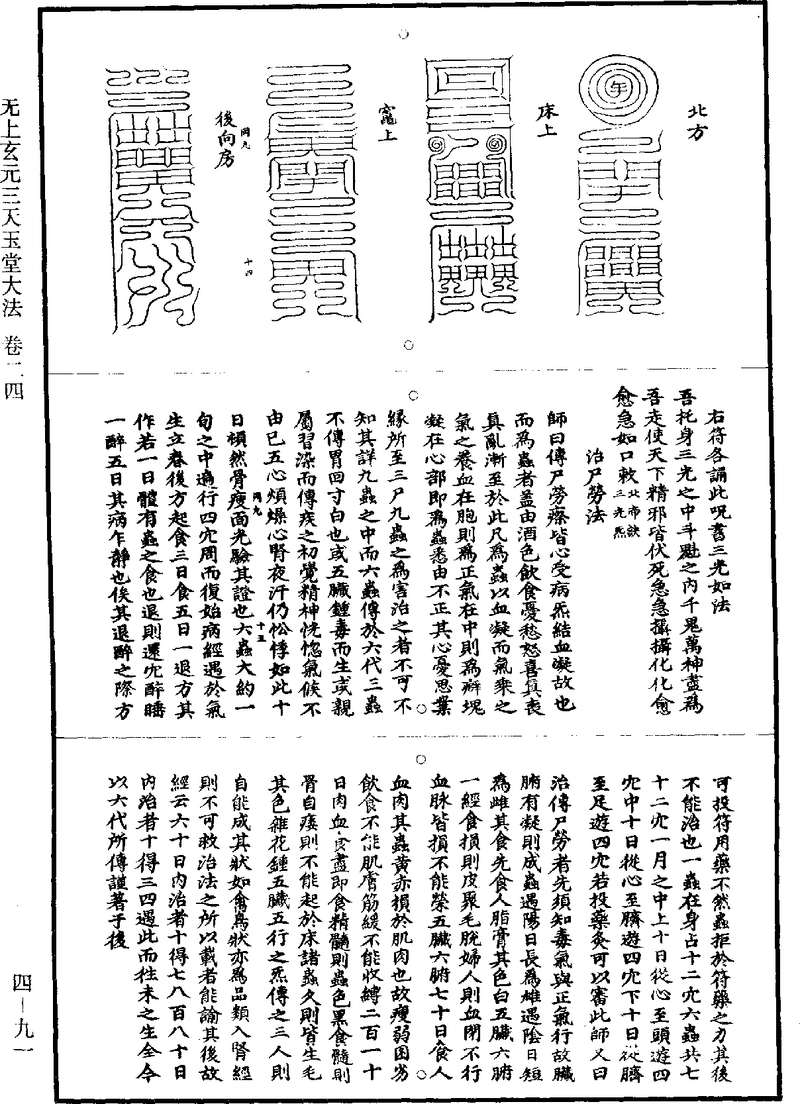 无上玄元三天玉堂大法 卷二四
四—九一
北方
床上
竈上
後向房
岡九
十四
右符各誦此呪書三光如法
吾托身三光之中斗魁之內千鬼萬神盡為
吾走使天下精邪皆伏死急急攝攝化化愈
愈急如口敕北帝鈇三光炁
治尸勞法
師曰傳尸勞瘵皆心受病炁結血凝故也
而為蟲者蓋由酒色飲食憂愁怒喜真喪
真亂漸至於此尺為蟲以血凝而氣乘之
氣之養血在胞則為正氣在中則為癖塊
凝在心部即為蟲悉由不正其心憂思業
緣所至三尸九蟲之為害治之者不可不
知其詳九蟲之中而六蟲傳於六代三蟲
不傳胃回寸白也或五臟鍾毒而生或親
屬習染而傳疾之初覺精神恍惚氣候不
由已五心煩燥心腎夜汗仍忪悸如此十
岡九
日頓然骨瘦面光驗其證也六蟲大約一
十五
旬之中遍行四穴周而復始病經遇於氣
生立春後方起食三日食五日一退方其
作若一日體有蟲之食也退則還穴醉睡
一醉五日其病乍靜也俟其退醉之際方
可投符用藥不然蟲拒於符藥之力其後
不能治也一蟲在身占十二穴六蟲共七
十二穴一月之中上十日從心至頭遊四
穴中十日從心至臍遊四穴下十日從臍
至足遊四穴若投藥灸可以審此師又曰
治傳尸勞者先須知毒氣與正氣行故臟
腑有凝則成蟲遇陽日長為雄遇陰日短
為雌其食先食人脂膏其色白五臟六腑
一經食損則皮聚毛脫婦人則血閉不行
血脉皆損不能榮五臟六腑七十日食人
血肉其蟲黃赤損於肌肉也故瘦弱困劣
飲食不能肌膚筋緩不能收縛二百一十
日肉血食盡即食精髓則蟲色黑食髓則
骨自痿則不能起於床諸蟲久則皆生毛
其色雜花鍾五臟五行之炁傳之三人則
自能成其狀如禽鳥狀亦為品類入腎經
則不可救治法之所以載者能諭其後故
經云六十日內治者十得七八百八十日
內治者十得三四過此而往未之生全今
以六代所傳謹著于後